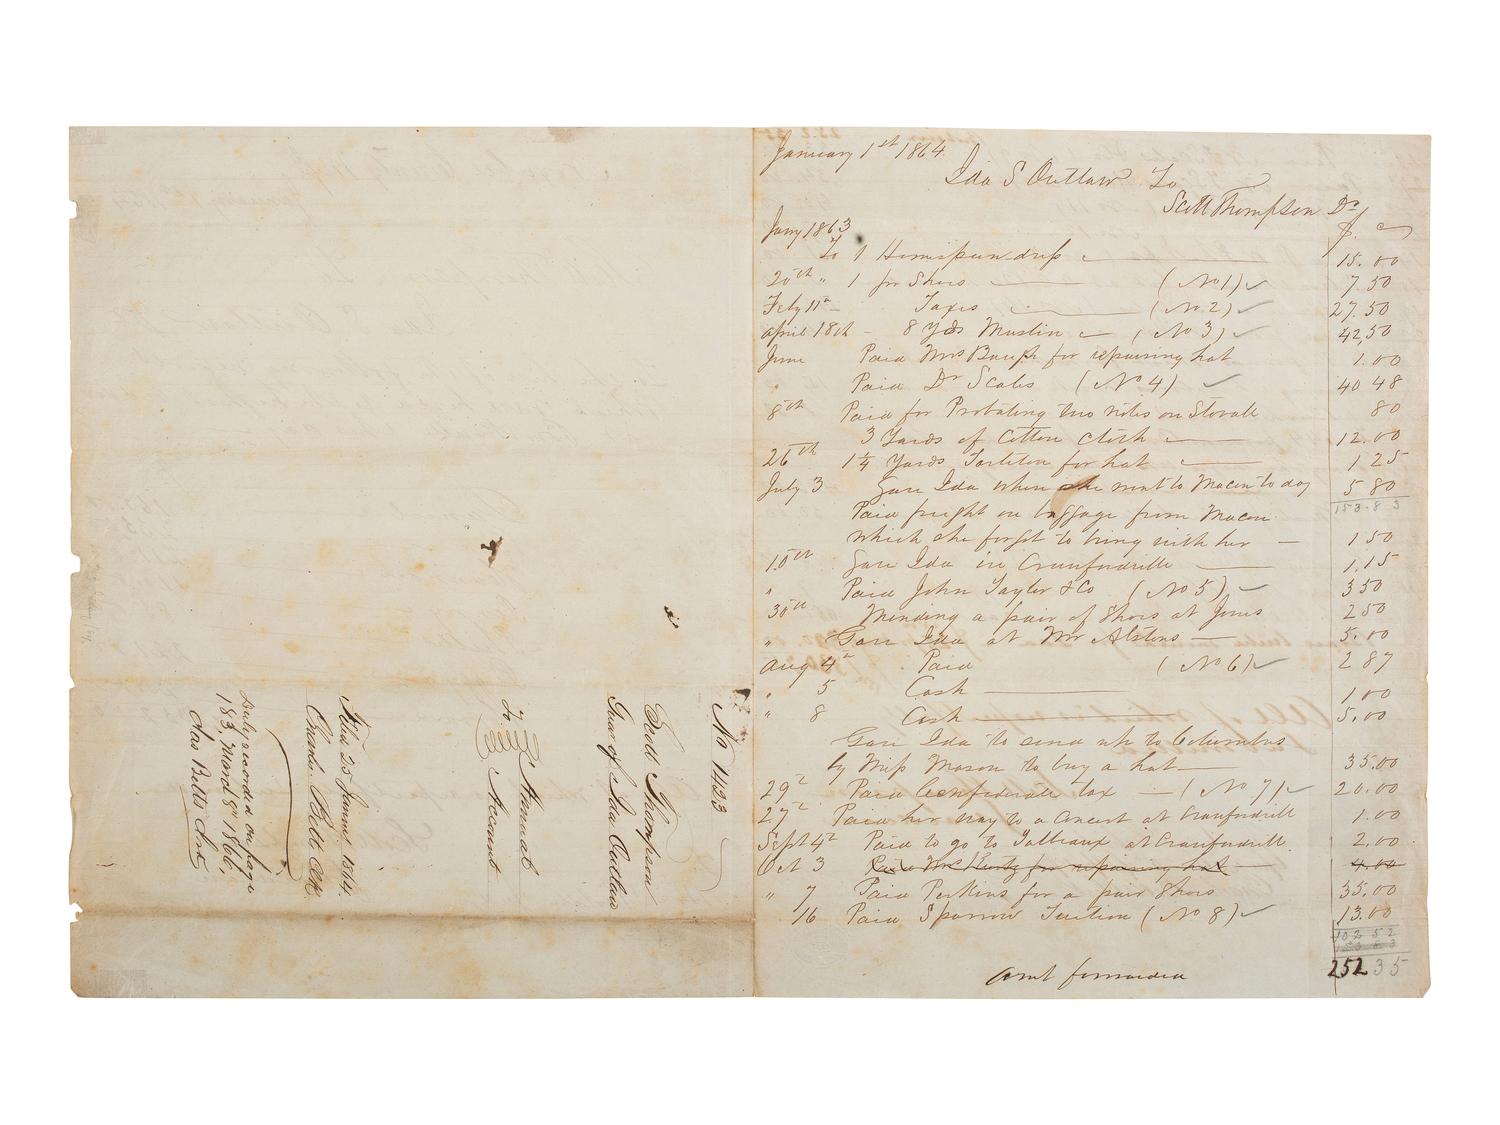 January 1st 1864
Ida S Outlaw To
Scott Thompson Dr
Jany 1863 $ c
To 1 Homispun dress 15.00
20th " 1 pr Shoes (No 1) 7 50
Feby 11th Taxes (No 2) 27.50
april 18th - 8 Yds Muslin (No 3) 42,50
June Paid Mrs Baugh for repairing hat 1.00
" Paid Dr Scales (No 4) 40 48
8th Paid for Probating two notes on Stovall 80
3 Yards of Cotton Cloth 12.00
26th 1 1/4 Yards Tarleton for hat 1 25
July 3 Gave Ida when she went to Macon to day 5 80
153.83
Paid freight on baggage from Macon
which she forgot to bring with her 1 50
10th Gave Ida in Crawfordville 1.15
" Paid John Taylor & Co (No 5) 3 50
30th Mending a pair of Shoes at Jones 2 50
" Gave Ida at Mr Alstons 5.00
Aug 4th Paid (No 6) 2 87
" 5 Cash 1.00
" 8 Cash 5.00
Gave Ida to send up to Columbus
by Miss Mason to buy a hat 35.00
29th Paid Confederate tax (No 7) 20.00
27th Paid her way to a Concert at Crawfordvill 1.00
Sept 4th Paid to go to Tableaux at Crawfordvill. 2.00
Oct 3 Paid for repairing hat 4.00
" 7 Paid Perkins for a pair Shoes 35.00
16 Paid Sparrow Tuition (No 8) 13.00
102 52
252 35
amt forwarded
No 1423
Scott Thompson
Guar of Ida Outlaw
To Annual
Account
Filed 25 Jany 1864
Charls. Betts Ck
Duly recorded on page
183, March 8th 1864,
Chas Betts Clk